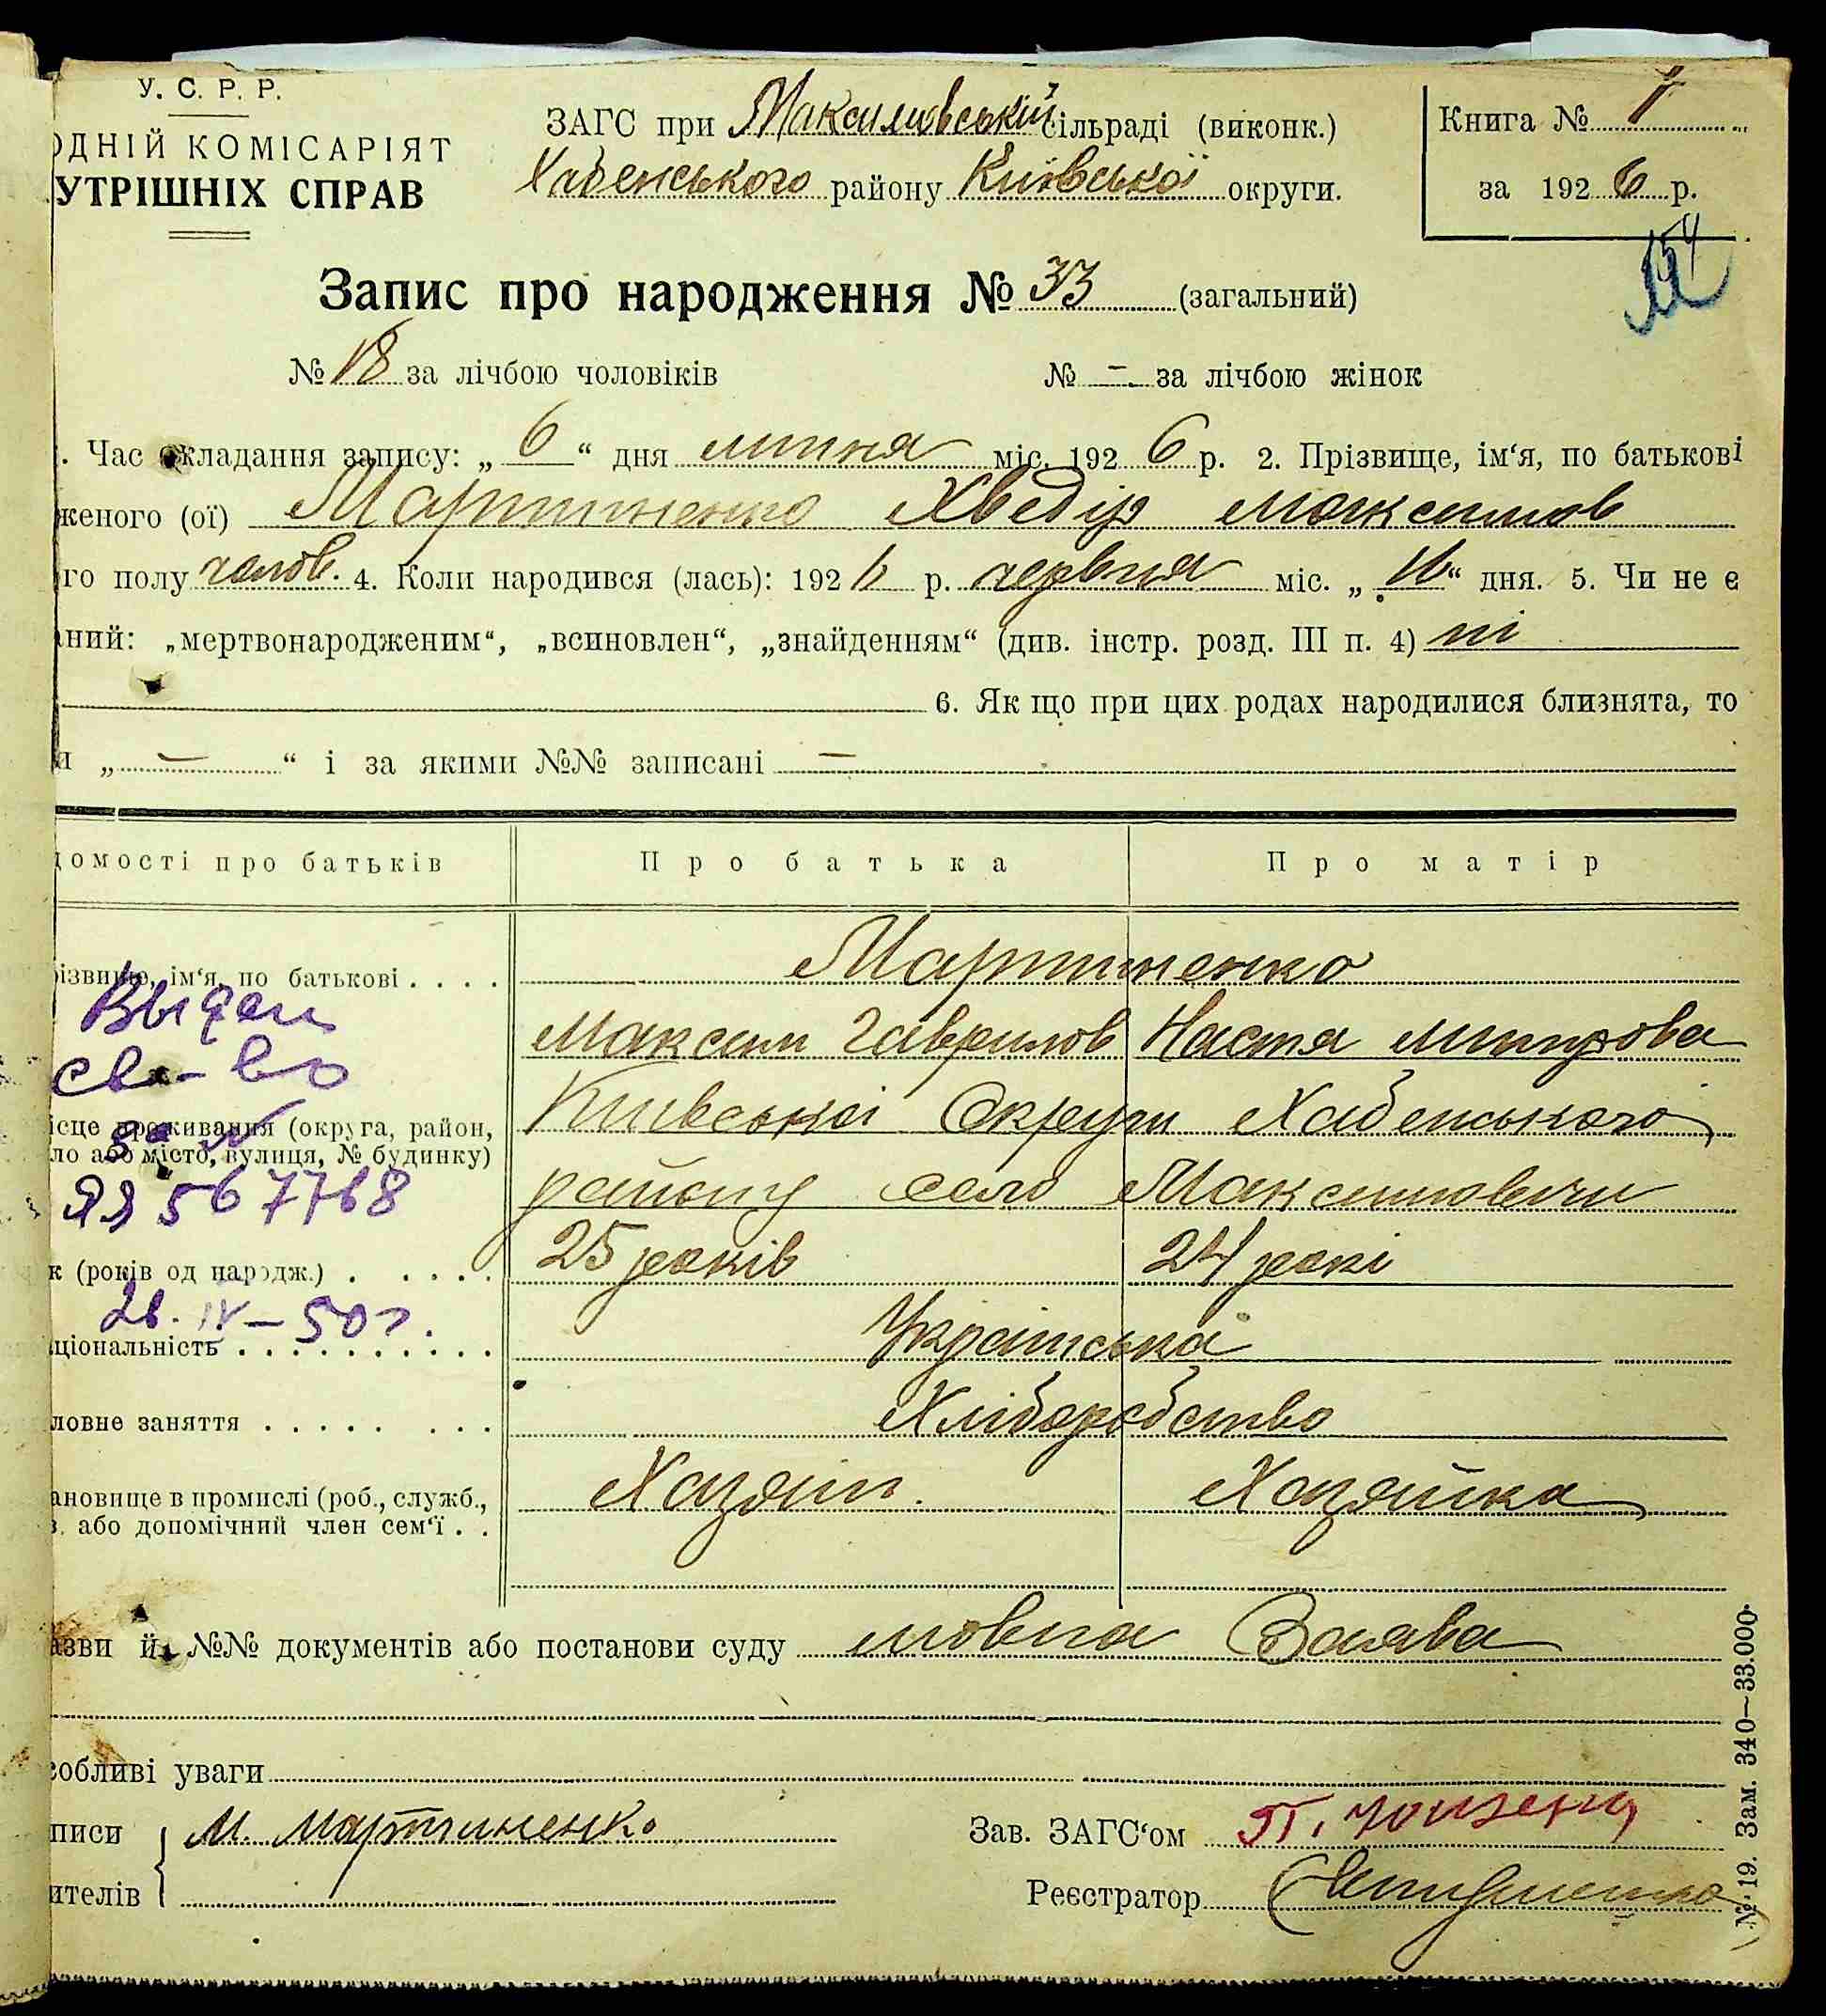 У. С. Р. Р.
ОДНІЙ КОМІСАРІЯТ
УТРІШНІХ СПРАВ
ЗАГС при Максимовській сільраді (виконк.)
Хабенського району Київської округи.
Книга № 1
за 1926 р.
154
Запис про народження № 33 (загальний)
№ 18 за лічбою чоловіків № – за лічбою жінок
. Час складання запису: „ 6 “ дня липня міс. 1926 р. 2. Прізвище, ім‘я, по батькові
женого (ої) Мартиненко Хведір Максимов
го полу чолов. 4. Коли народився (лась): 1926 р. червня міс. „ 16 “ дня. 5. Чи не є
аний: „мертвонародженим“, „всиновлен“, „знайденням“ (див. інстр. розд. III п. 4) ні
6. Як що при цих родах народилися близнята, то
и „ – “ і за якими №№ записані –
домості про батьків Про батька Про матір
різвище, ім‘я, по батькові . . . . Мартиненко
Максим Гаврилов Настя Митрова
Выдан
св-во
ісце проживання (округа, район,
ло або місто, вулиця, № будинку)
Київської Округи Хабенського
району село Максимовичи
за №
ЯЯ 567768
к (років од народж.) . . . . . 25 років 24 рокі
26. IV – 50 г.
ціональність . . . . . . . . . . Українська
ловне заняття . . . . . . . . Хліборобство
ановище в промислі (роб., служб.,
з. або допомічний член сем‘ї . . Хазяїн. Хазяйка
азви й №№ документів або постанови суду мовна Заява
собливі уваги
писи М. Мартиненко
ителів
Зав. ЗАГС‘ом
Реєстратор
№ 19. Зам. 340—33.000.